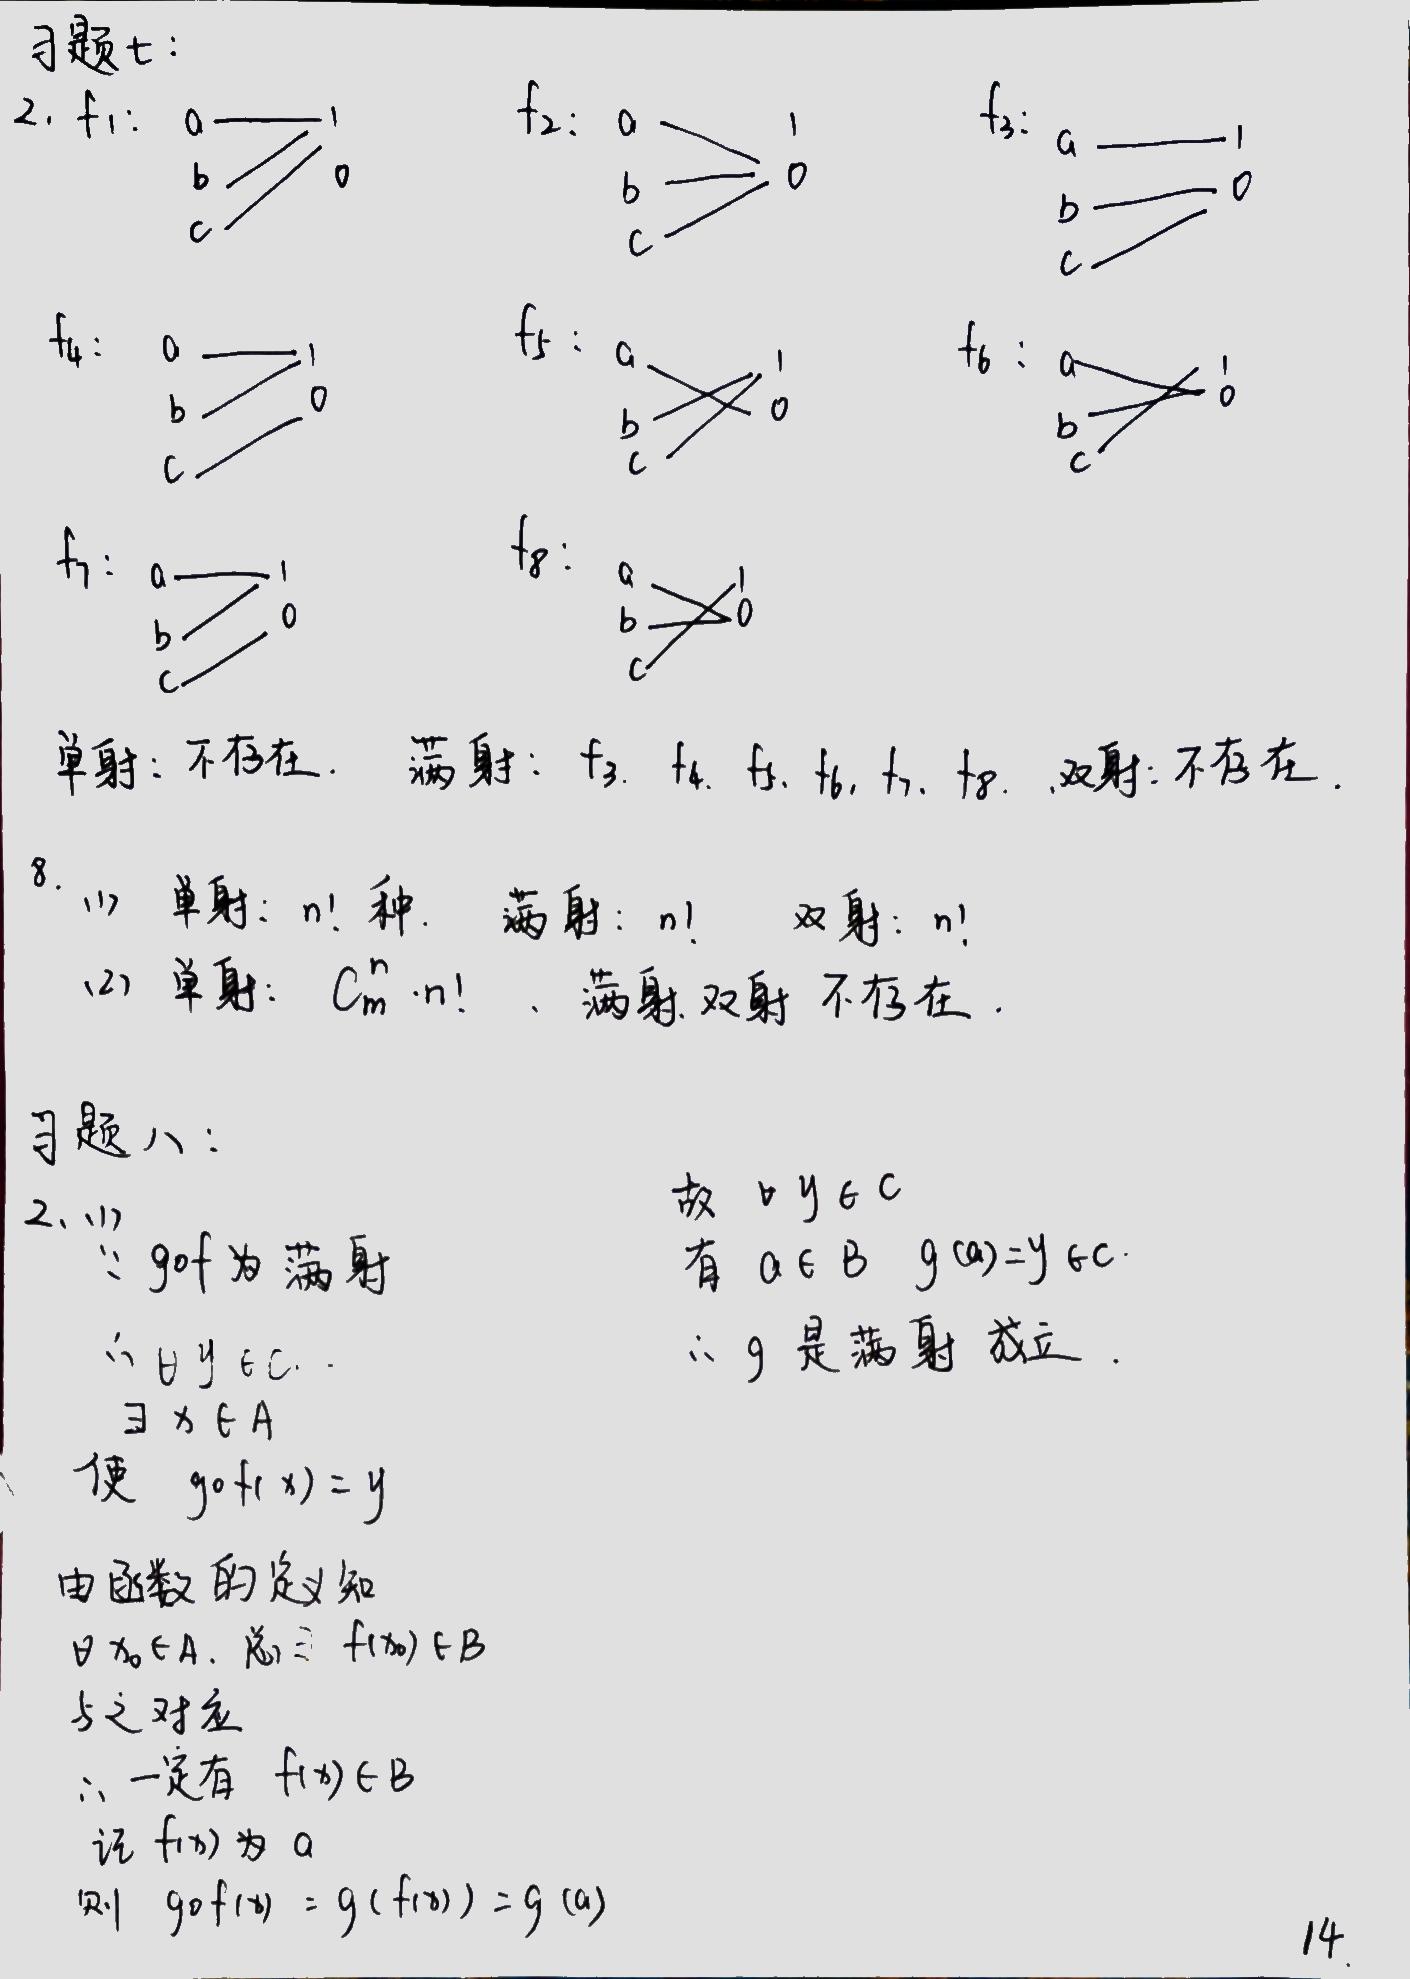 习题七:
2. f1: a 1 f2: a 1 f3: a 1
b 0 b 0 b 0
c c c
f4: a 1 f5: a 1 f6: a 1
b 0 b 0 b 0
c c c
f7: a 1 f8: a 1
b 0 b 0
c c
单射: 不存在. 满射: f3. f4. f5. f6. f7. f8. 双射: 不存在.
8. (1) 单射: n! 种. 满射: n! 双射: n!
(2) 单射: C_m^n · n! 、满射、双射 不存在.
习题八:
2、(1)
∵ g∘f 为 满射
∴ ∀ y ∈ C.
∃ x ∈ A
使 g∘f(x) = y
由函数的定义知
∀ x₀ ∈ A. 总∃ f(x₀) ∈ B
与之对应
∴ 一定有 f(x) ∈ B
记 f(x) 为 a
则 g∘f(x) = g(f(x)) = g(a)
故 ∀ y ∈ C
有 a ∈ B g(a) = y ∈ C.
∴ g 是满射 成立.
14.